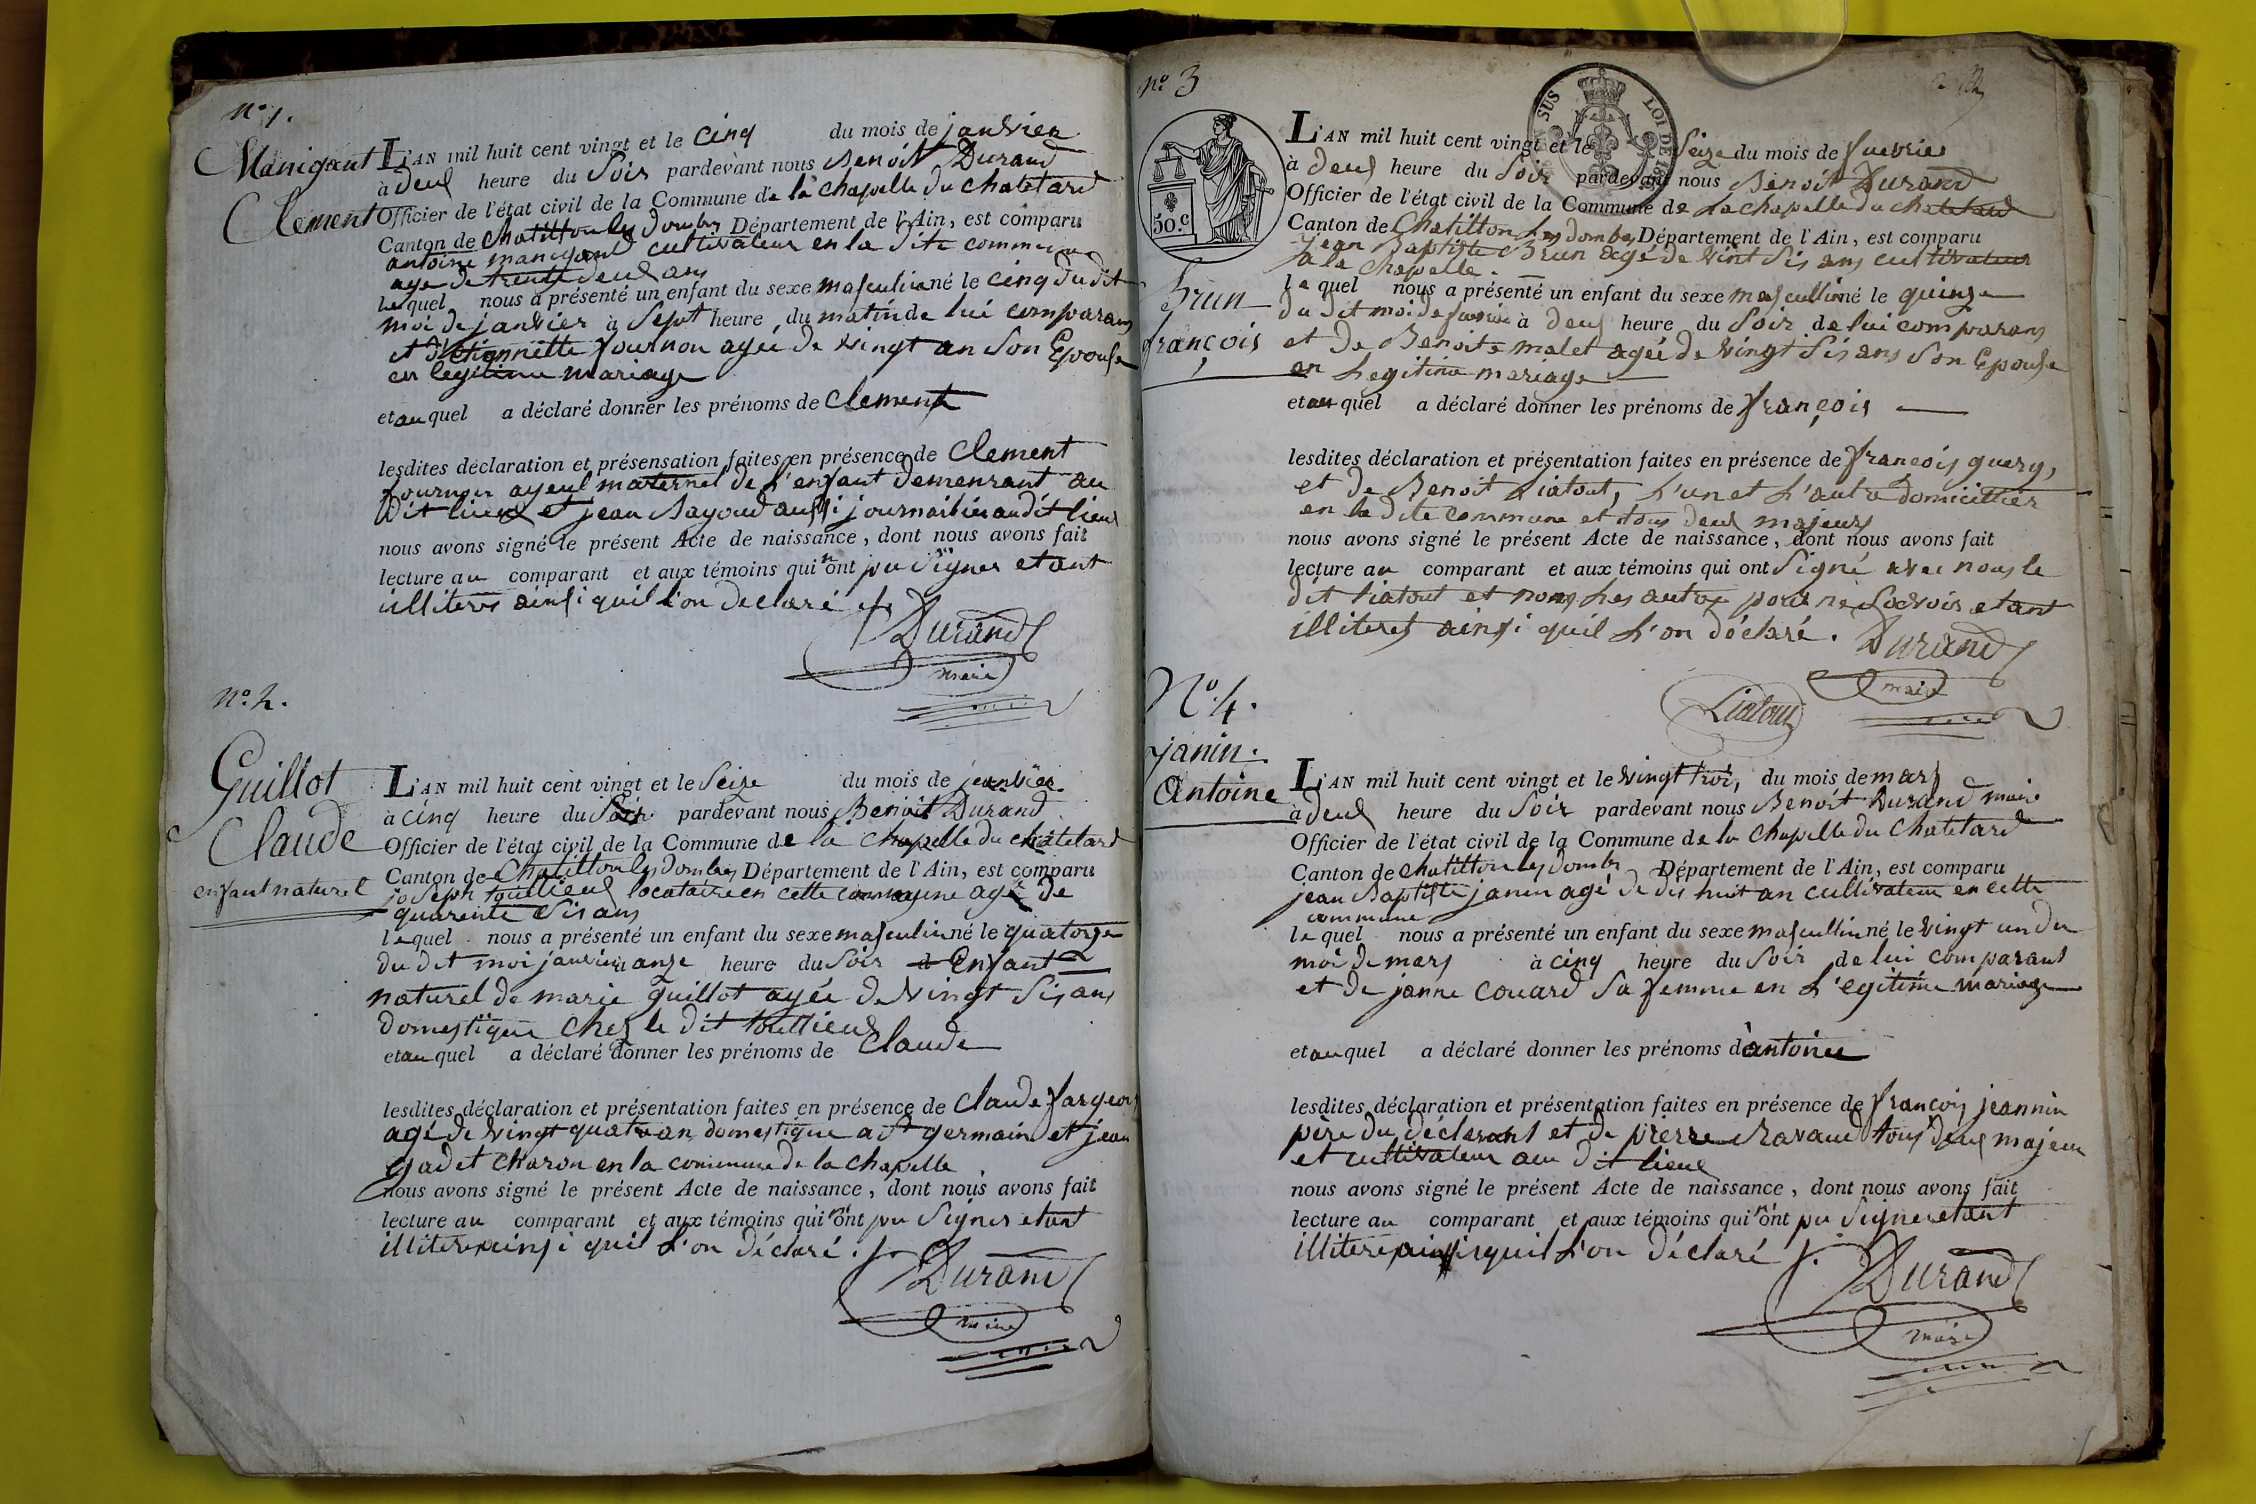 N.º 1.
Manigant
Clement
L'AN mil huit cent vingt et le cinq du mois de janvier
à deux heure du Soir pardevant nous Benoit Durand
Officier de l'état civil de la Commune de la chapelle du chatelard
Canton de Chatillon les dombes Département de l'Ain, est comparu
antoine manigand cultivateur en la dite commune
age de trente deux ans
lequel nous a présenté un enfant du sexe masculin né le cinq du dit
moi de janvier à Sept heure du matin de lui comparans
et d'Etiennette fournou agée de vingt an Son Epouse
en legitime mariage
et au quel a déclaré donner les prénoms de Clement
lesdites déclaration et présensation faites en présence de Clement
fournou ayeul maternel de l'enfant demeurant au
dit lieux et jean Bayoud aussi journalier au dit lieux
nous avons signé le présent Acte de naissance, dont nous avons fait
lecture au comparant et aux témoins qui n'ont pu Signer etant
illiteres ainsi quil l'on declaré
Durand
maire
N.º 2.
Guillot
Claude
enfant naturel
L'AN mil huit cent vingt et le Seize du mois de janvier
à cinq heure du Soir pardevant nous Benoit Durand
Officier de l'état civil de la Commune de la chapelle du chatelard
Canton de Chatillon les dombes Département de l'Ain, est comparu
joseph touttieux locataire en cette commune agé de
quarente Sis ans
lequel nous a présenté un enfant du sexe masculin né le quatorze
du dit moi janvier à onze heure du Soir Enfant
naturel de marie guillot agée de vingt Sis ans
domestique chez le dit touttieux
et au quel a déclaré donner les prénoms de Claude
lesdites déclaration et présentation faites en présence de Claude fargeon
agé de vingt quatre an domestique a St germain et jean
gadet charon en la commune de la chapelle
nous avons signé le présent Acte de naissance, dont nous avons fait
lecture au comparant et aux témoins qui n'ont pu Signer etant
illitere ainsi quil l'on déclaré.
Durand
maire
Nº 3
brun
françois
SUS
LOI DE
50.c
L'AN mil huit cent vingt et le Seize du mois de fuevrier
à deux heure du Soir pardevant nous Benoit Durand
Officier de l'état civil de la Commune de La chapelle du chatelard
Canton de Chatillon les dombes Département de l'Ain, est comparu
jean Baptiste Brun agé de vint Sis ans cultivateur
a la Chapelle.
lequel nous a présenté un enfant du sexe masculin né le quinze
du dit moi de fuevrier à deux heure du Soir de lui comparans
et de Benoite malet agée de vingt Sis ans Son Epouse
en Legitime mariage
et au quel a déclaré donner les prénoms de françois
lesdites déclaration et présentation faites en présence de françois guery,
et de Benoit Liatout, L'un et L'autre domicillier
en la dite commune et tous deux majeurs
nous avons signé le présent Acte de naissance, dont nous avons fait
lecture au comparant et aux témoins qui ont Signé avec nous le
dit Liatout et non Les autre pour ne Scavoir etant
illiteret ainsi quil L'on déclaré.
Durand
maire
Liatout
Nº 4.
janin.
Antoine
L'AN mil huit cent vingt et le vingt troi, du mois de mars
à deux heure du Soir pardevant nous Benoit Durand maire
Officier de l'état civil de la Commune de la chapelle du Chatelard
Canton de chatillon les dombes Département de l'Ain, est comparu
jean Baptiste janin agé de dis huit an cultivateur en cette
commune
lequel nous a présenté un enfant du sexe mascullin né le vingt un du
moi de mars à cinq heure du Soir de lui comparant
et de janne couard Sa femme en L'egitime mariage
et au quel a déclaré donner les prénoms d'antoine
lesdites déclaration et présentation faites en présence de françois jeannin
père du déclarant et de pierre Ravaud tous deux majeur
et cultivateur au dit lieux
nous avons signé le présent Acte de naissance, dont nous avons fait
lecture au comparant et aux témoins qui n'ont pu Signer etant
illitere ainsi quil l'on déclaré
Durand
maire